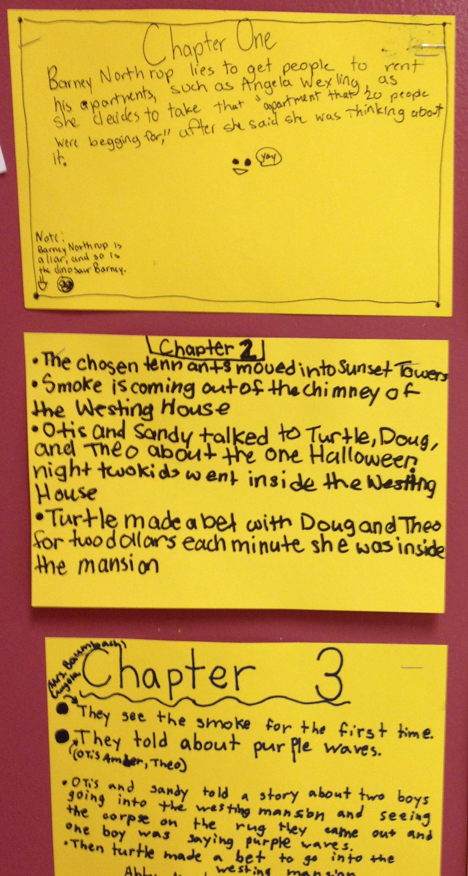 Chapter One
Barney Northrup lies to get people to rent
his apartments, such as Angela Wexling, as
she decides to take that "apartment that 20 people
were begging for," after she said she was thinking about
it.
yay
Note:
Barney Northrup is
a liar, and so is
the dinosaur Barney.
Chapter 2
• The chosen tennants moved into Sunset Towers
• Smoke is coming out of the chimney of
the Westing House
• Otis and Sandy talked to Turtle, Doug,
and Theo about the one Halloween
night two kids went inside the Westing
House
• Turtle made a bet with Doug and Theo
for two dollars each minute she was inside
the mansion
(Mrs. Baumbach)
Angela
Chapter 3
• They see the smoke for the first time.
• They told about purple waves.
(Otis Amber, Theo)
• Otis and Sandy told a story about two boys
going into the westing mansion and seeing
the corpse on the rug they came out and
one boy was saying purple waves.
• Then turtle made a bet to go into the
westing mansion